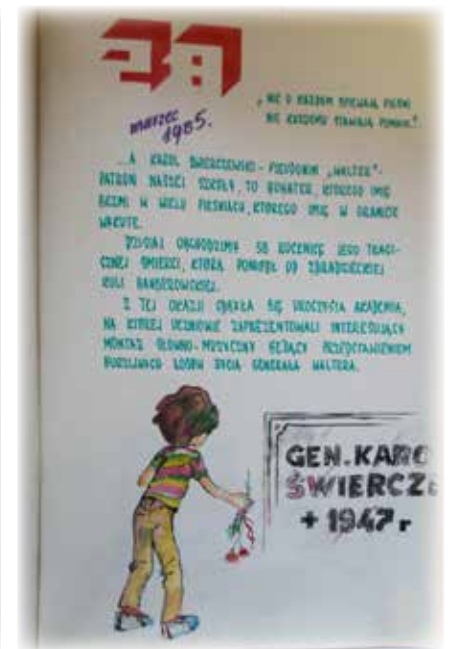 28
marzec
1985.
„NIE O KAŻDYM ŚPIEWAJĄ PIEŚNI
NIE KAŻDEMU STAWIAJĄ POMNIK."
...A KAROL ŚWIERCZEWSKI - PSEUDONIM „WALTER"-
PATRON NASZEJ SZKOŁY, TO BOHATER, KTÓREGO IMIĘ
BRZMI W WIELU PIEŚNIACH, KTÓREGO IMIĘ W GRANICIE
WYKUTE.
DZISIAJ OBCHODZIMY 38 ROCZNICĘ JEGO TRAGI-
CZNEJ ŚMIERCI, KTÓRĄ PONIÓSŁ OD ZDRADZIECKIEJ
KULI BANDEROWSKIEJ.
Z TEJ OKAZJI ODBYŁA SIĘ UROCZYSTA AKADEMIA,
NA KTÓREJ UCZNIOWIE ZAPREZENTOWALI INTERESUJĄCY
MONTAŻ SŁOWNO-MUZYCZNY BĘDĄCY PRZEDSTAWIENIEM
BURZLIWEGO LOSÓW ŻYCIA GENERAŁA WALTERA.
GEN. KARO
ŚWIERCZE
+ 1947 r